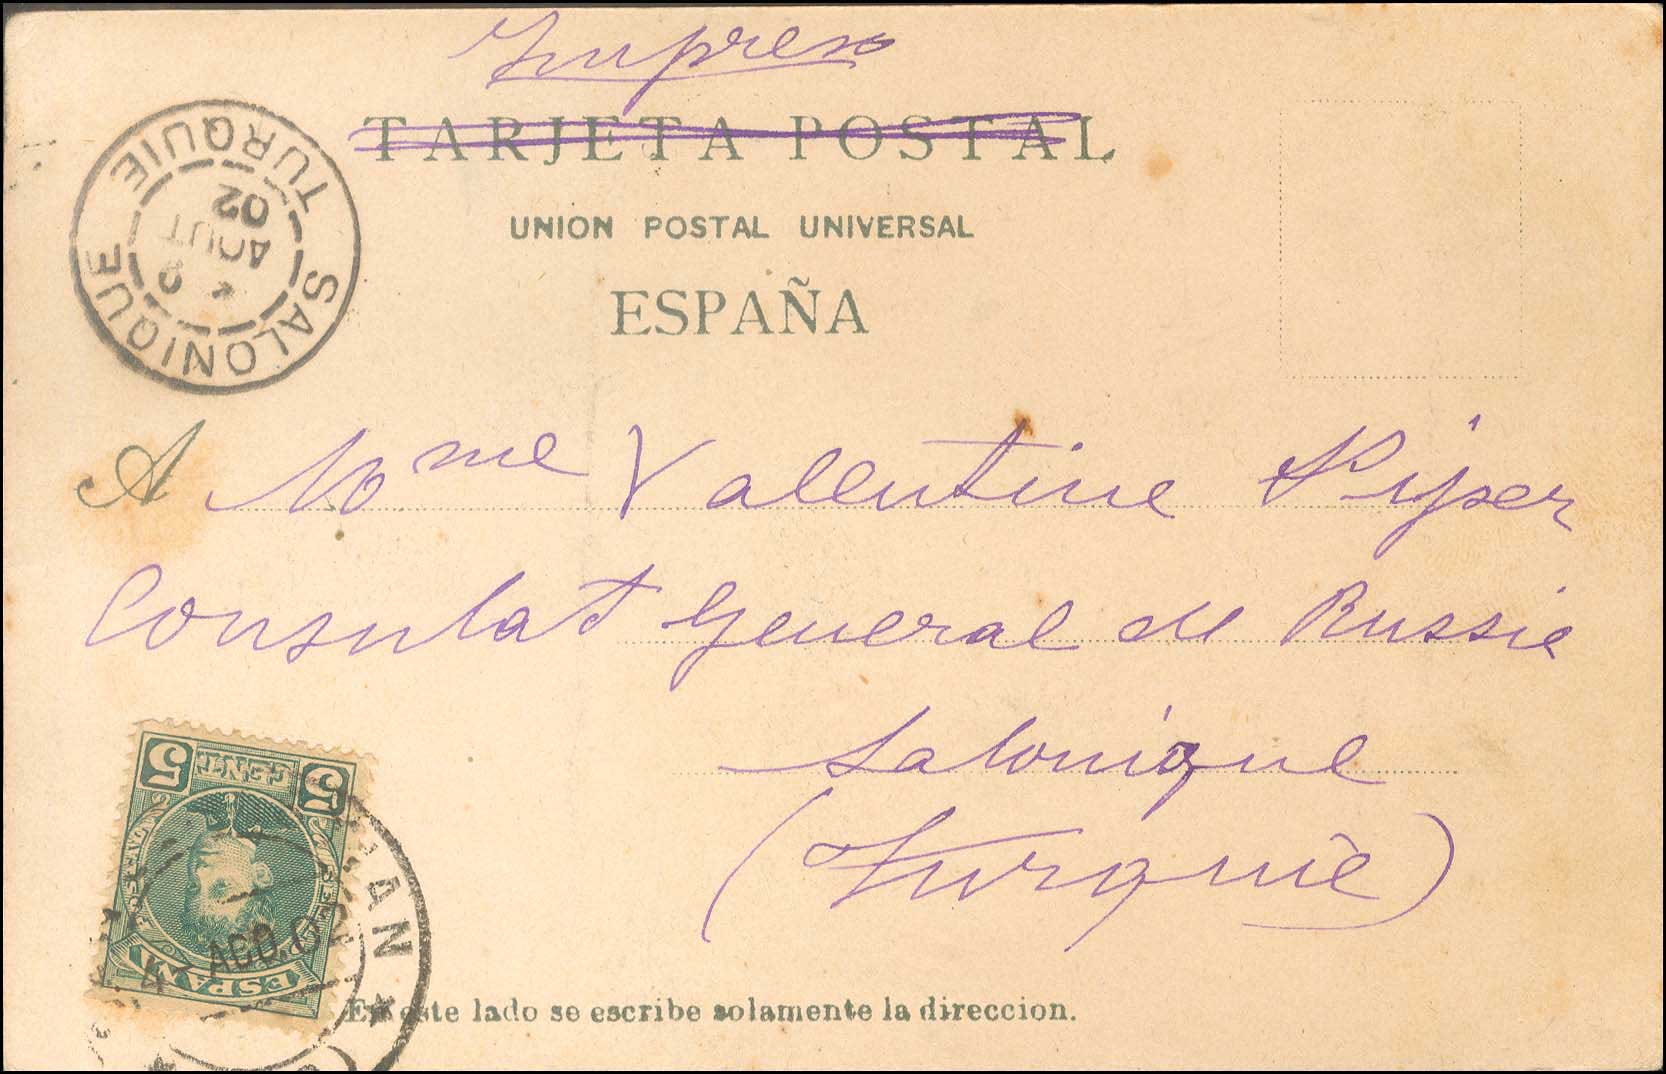 Impreso
TARJETA POSTAL
UNION POSTAL UNIVERSAL
ESPAÑA
SALONIQUE TURQUIE
9
AOUT
02
A Mme Valentine
Consulat General de Russie
Salonique
(Turquie)
5 CENT 5
ESPAÑA
4 - AGO.02
En este lado se escribe solamente la direccion.